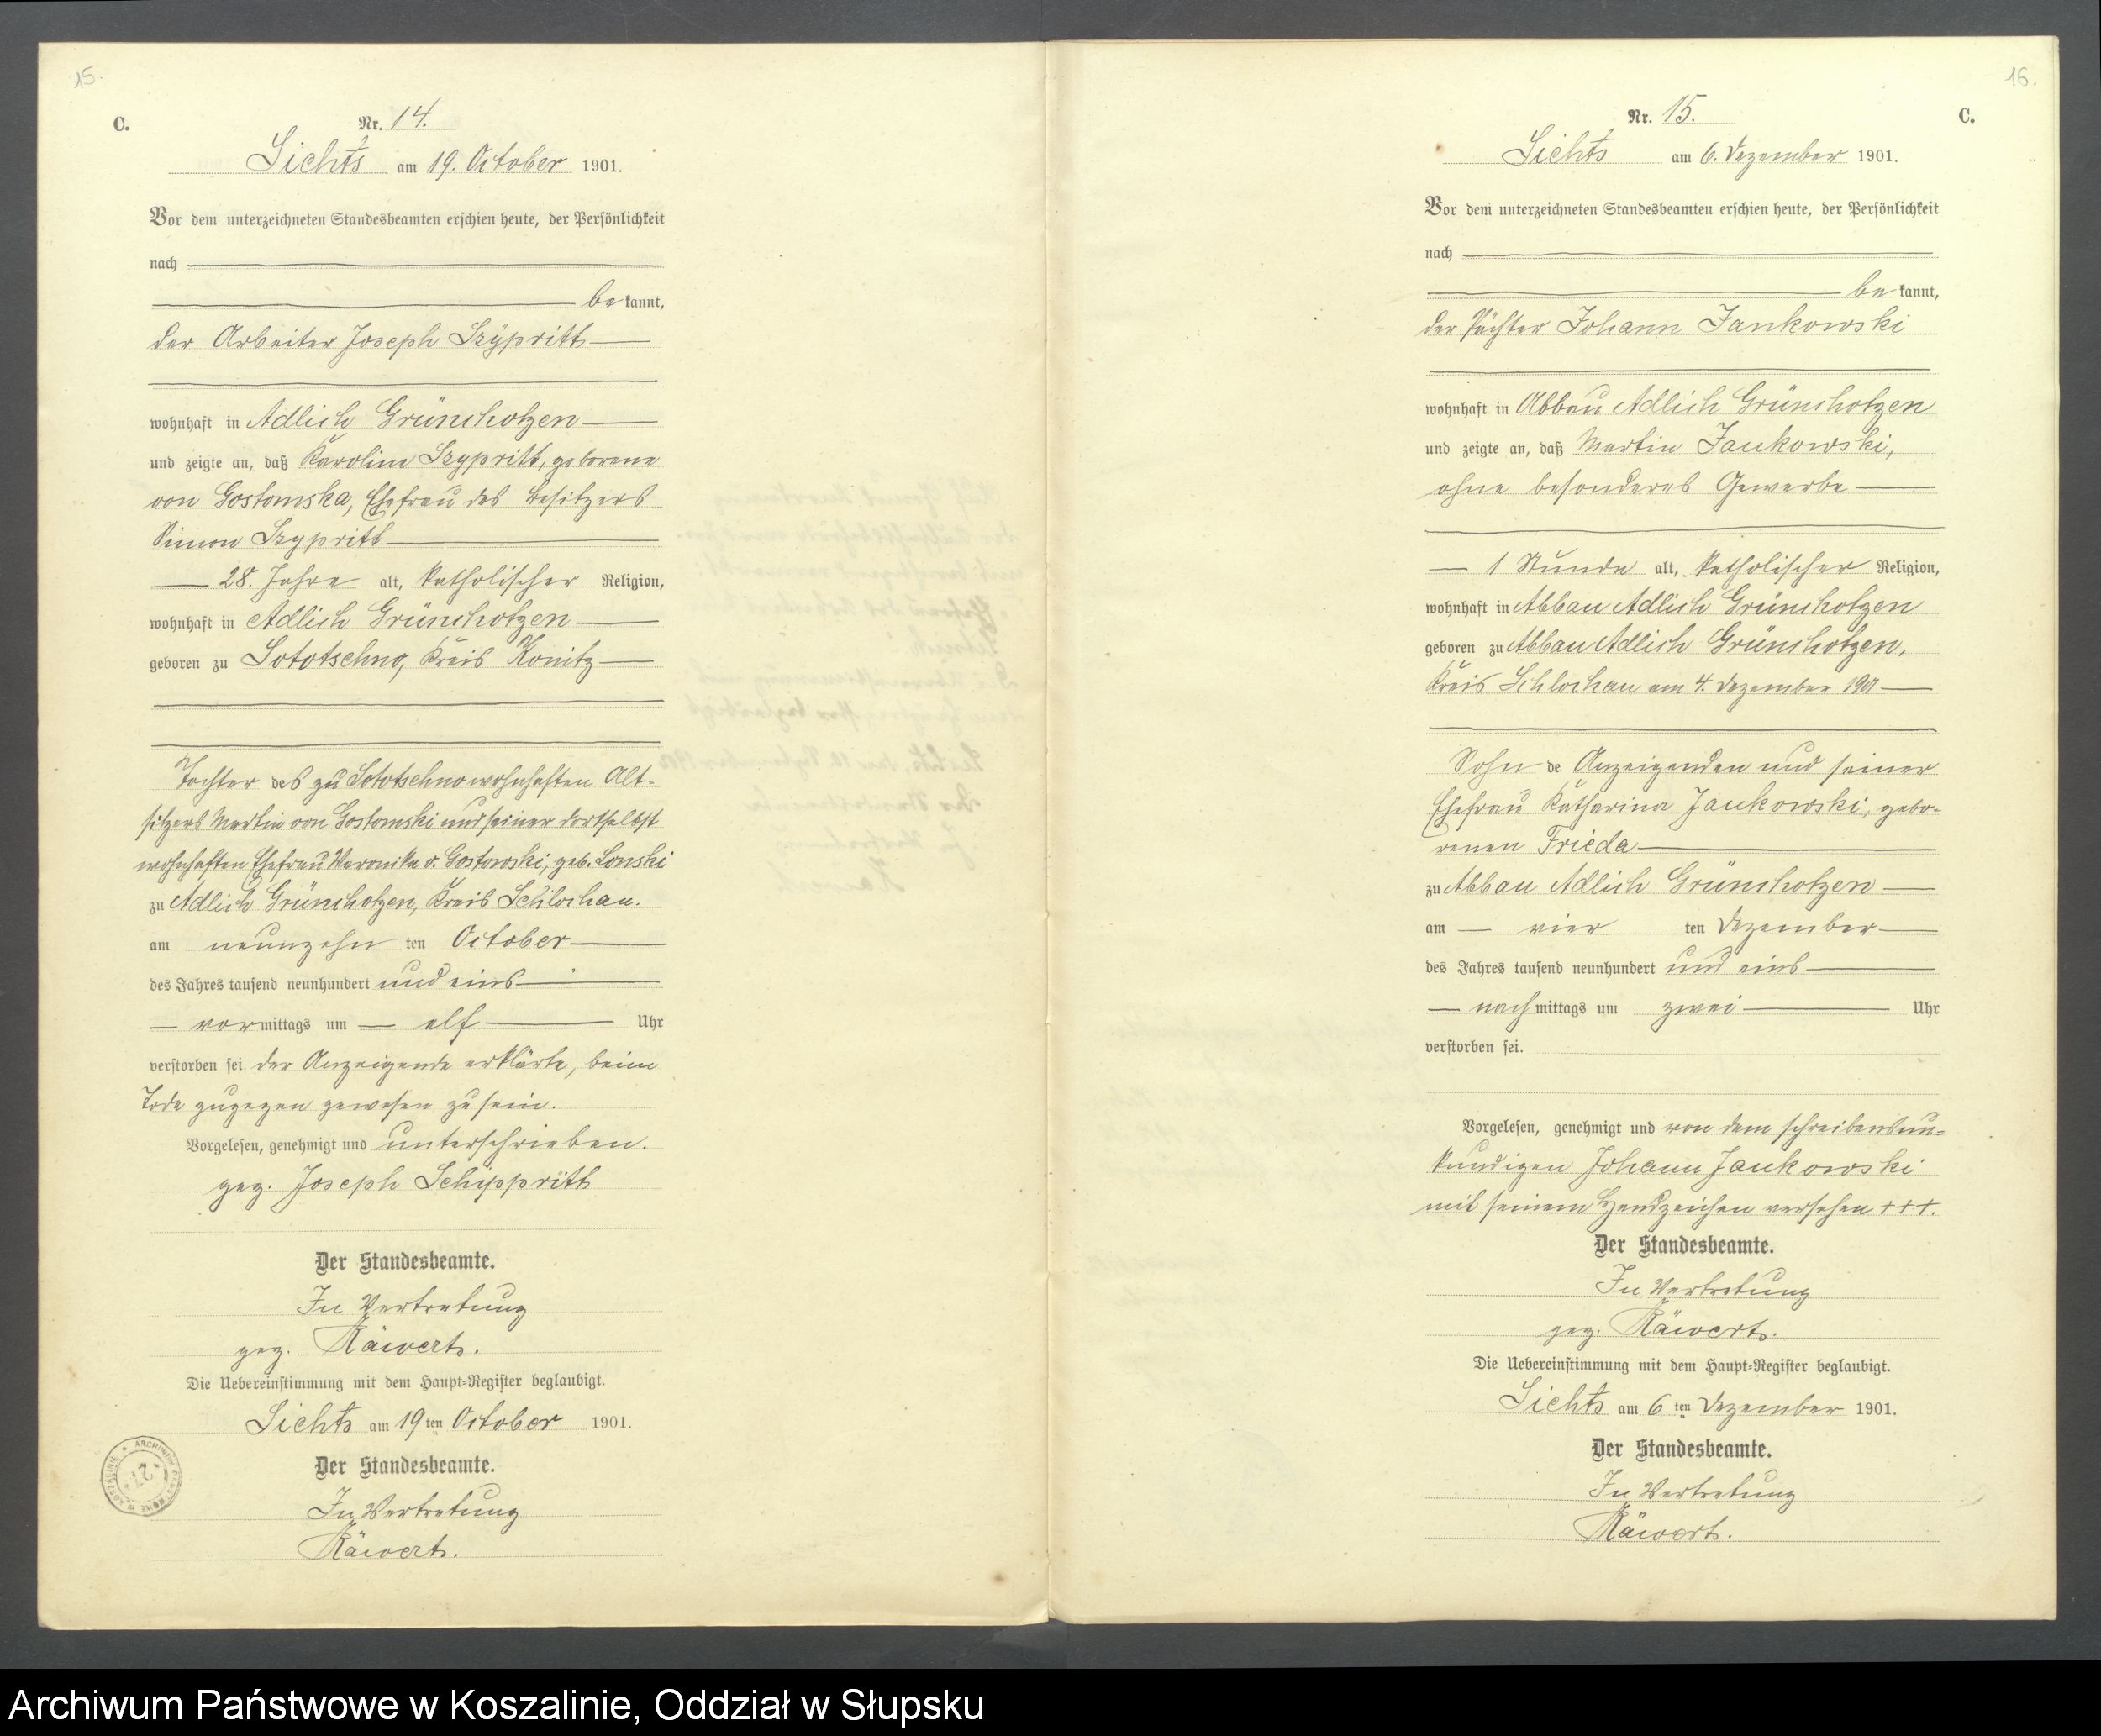 15.
C.
Nr. 14.
Lichts am 19. October 1901.
Vor dem unterzeichneten Standesbeamten erschien heute, der Persönlichkeit
nach
be kannt,
der Arbeiter Joseph Szÿpritt
wohnhaft in Adlich Grünchotzen
und zeigte an, daß Karoline Szypritt, geborene
von Gostomska, Ehefrau des Besitzers
Simon Szypritt
28. Jahre alt, katholischer Religion,
wohnhaft in Adlich Grünchotzen
geboren zu Lototschno, Kreis Konitz
Tochter des zu Lototschno wohnhaften Alt-
sitzers Martin von Gostomski und seiner dortselbst
wohnhaften Ehefrau Veronika v. Gostowski, geb. Lonski
zu Adlich Grünchotzen, Kreis Schlochau.
am neunzehn ten October
des Jahres tausend neunhundert und eins
vormittags um elf Uhr
verstorben sei der Anzeigende erklärte, beim
Tode zugegen gewesen zu sein.
Vorgelesen, genehmigt und unterschrieben.
gez. Joseph Schippritt
Der Standesbeamte.
In Vertretung
gez. Räwert.
Die Uebereinstimmung mit dem Haupt-Register beglaubigt.
Lichts am 19ten October 1901.
Der Standesbeamte.
In Vertretung
Räwert.
16.
C.
Nr. 15.
Lichts am 6. Dezember 1901.
Vor dem unterzeichneten Standesbeamten erschien heute, der Persönlichkeit
nach
be kannt,
der Pächter Johann Jankowski
wohnhaft in Abbau Adlich Grünchotzen
und zeigte an, daß Martin Jankowski,
ohne besonderes Gewerbe
1 Stunde alt, katholischer Religion,
wohnhaft in Abbau Adlich Grünchotzen
geboren zu Abbau Adlich Grünchotzen,
Kreis Schlochau am 4. Dezember 1901
Sohn de Anzeigenden und seiner
Ehefrau Katharina Jankowski, gebo-
renen Frieda
zu Abbau Adlich Grünchotzen
am vier ten Dezember
des Jahres tausend neunhundert und eins
nachmittags um zwei Uhr
verstorben sei.
Vorgelesen, genehmigt und von dem schreibensun-
kundigen Johann Jankowski
mit seinem Handzeichen versehen +++.
Der Standesbeamte.
In Vertretung
gez. Räwert.
Die Uebereinstimmung mit dem Haupt-Register beglaubigt.
Lichts am 6 ten Dezember 1901.
Der Standesbeamte.
In Vertretung
Räwert.
Archiwum Państwowe w Koszalinie, Oddział w Słupsku